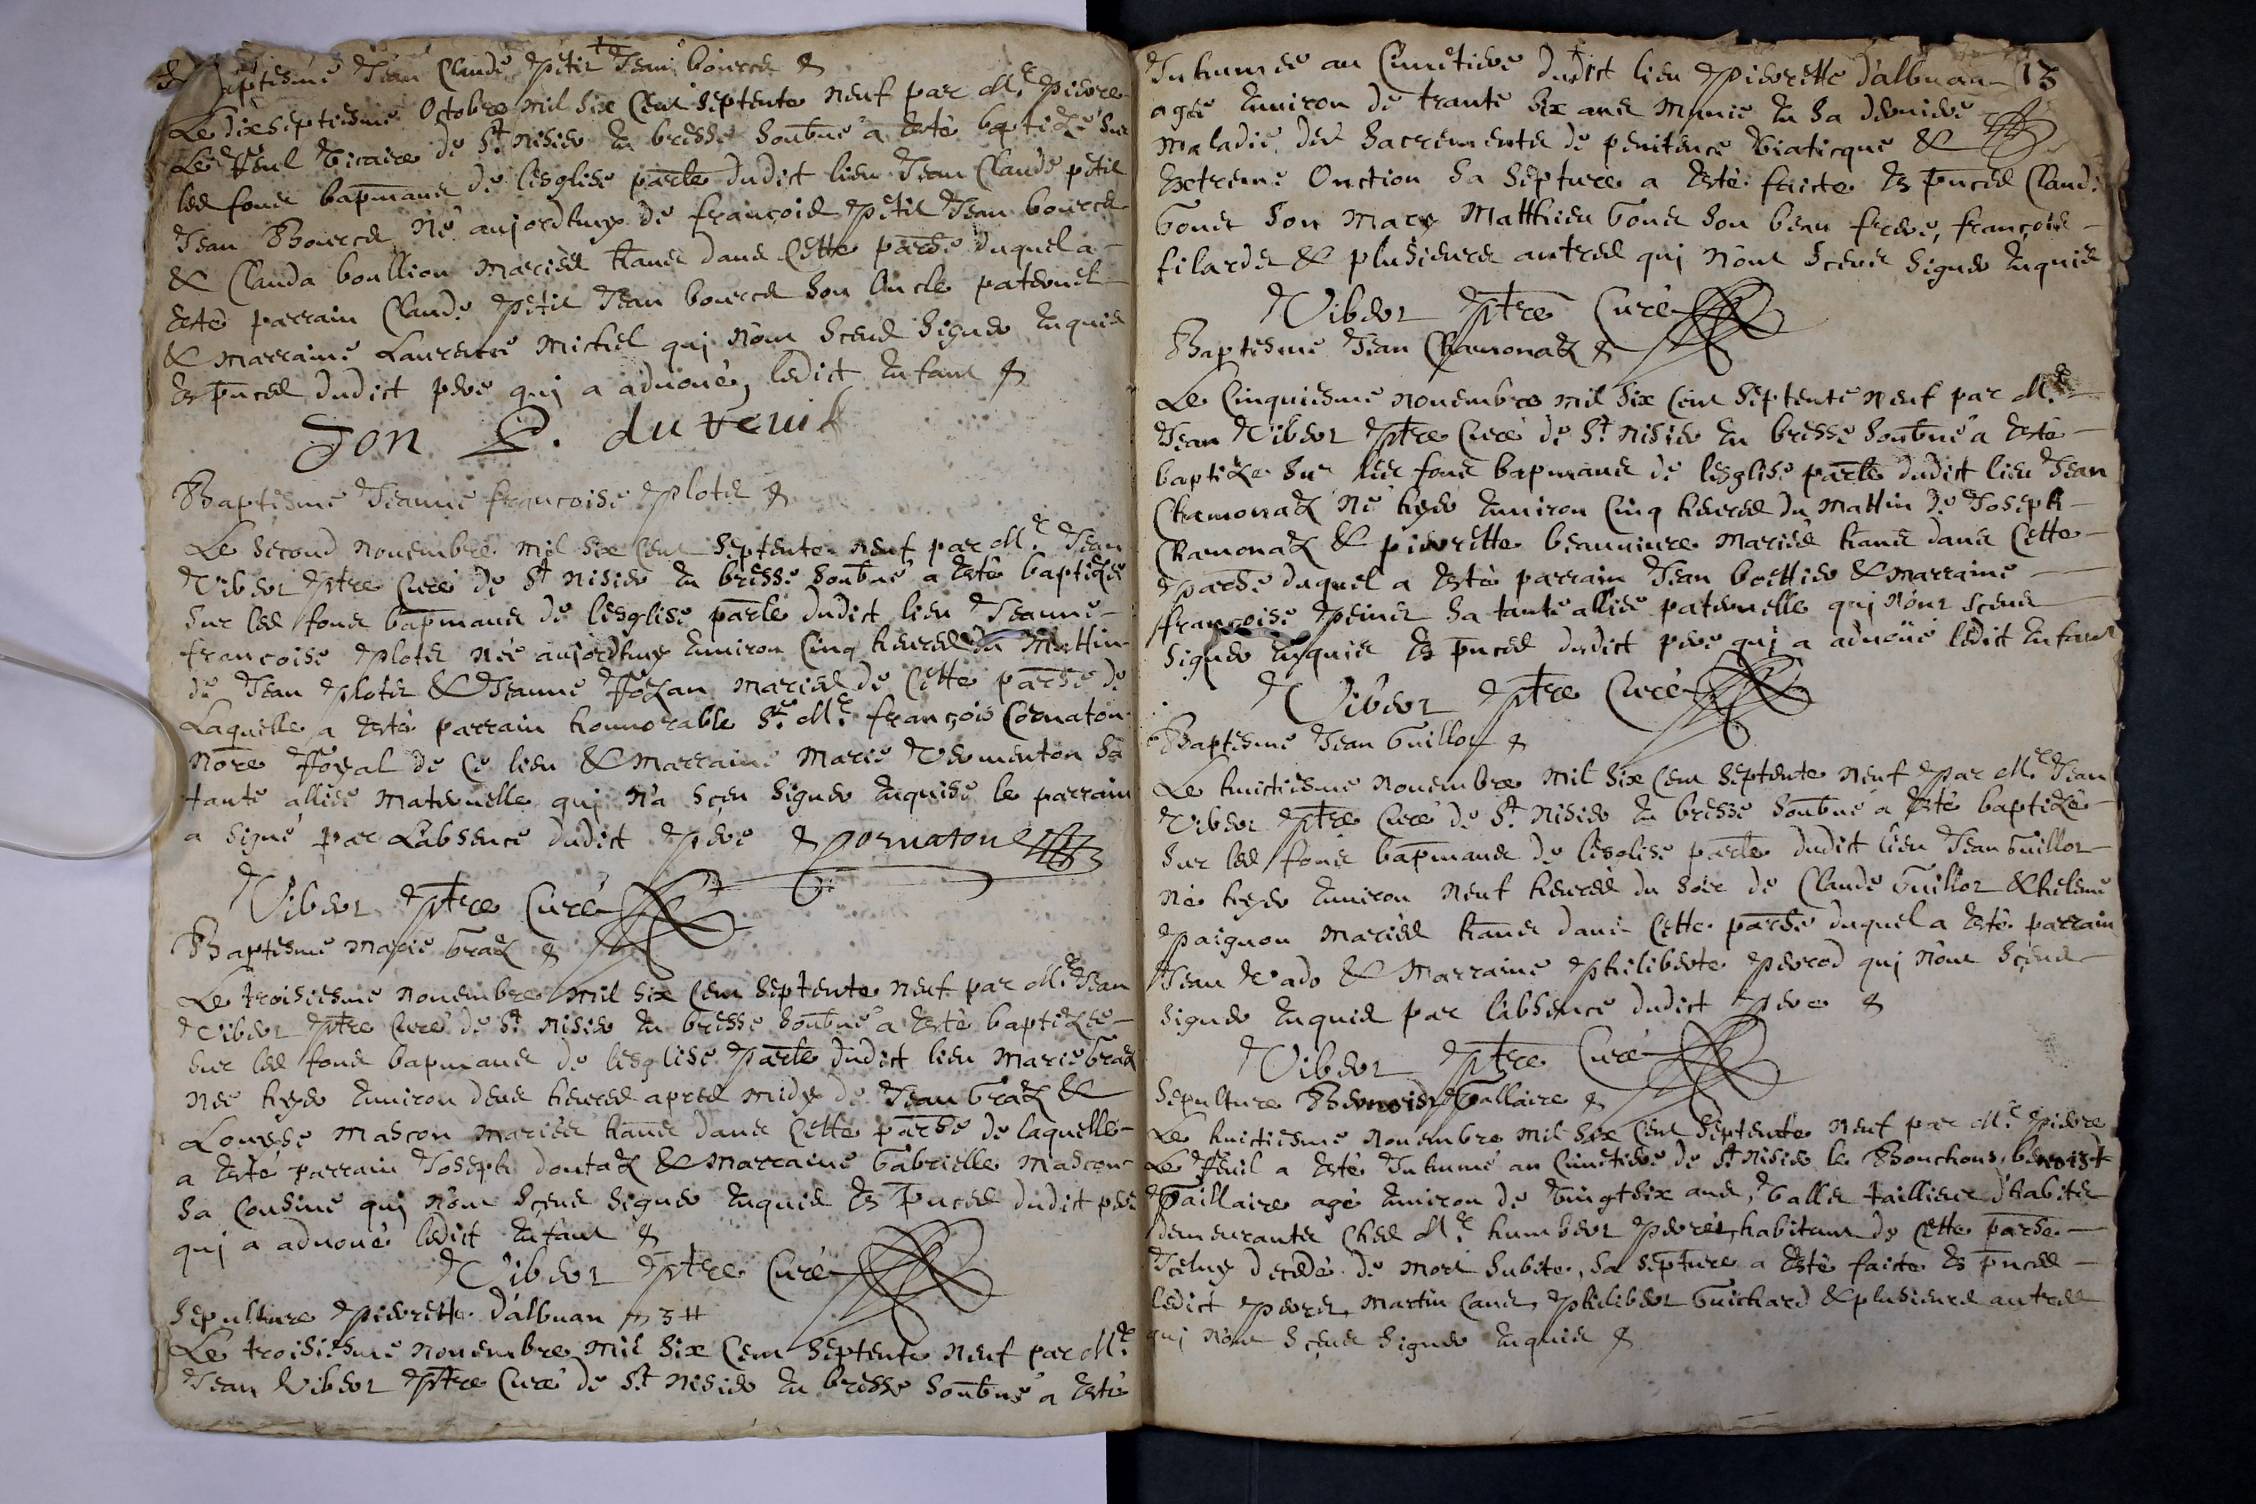 Baptesme Jean Claude Petit Jean bource
Le dixseptiesme Octobre mil six cent septente neuf par Mre Pierre
Le Feul vicaire de St Nisier en bresse soubné a esté baptizé sur
les fons bapmaus de lesglise parle dudict lieu Jean Claude petit
Jean Bource né aujordhuy de françois Petit Jean bource
& Clauda boullion mariés hans dans cette parse duquel a
esté parrain Claude Petit Jean bource son Oncle paternel
& marraine Laurence Michel qui n'ont sceus signer enquis
Es pnces dudict pere qui a aduoué ledict enfant
Baptesme Jeanne françoise Plotes
Le second nouembre mil six cent septente neuf par Mre Jean
Vibert Ptre Curé de St Nisier en bresse soubné a esté baptizée
sur les fons bapmaus de lesglise parle dudict lieu Jeanne
françoise Plotes née aujordhuy enuiron cinq heures du Mattin
de Jean Plotes & Jeanne mariés de cette parse de
Laquelle a esté parrain honnorable Sr Mre françois Cornaton
Nore Royal de ce lieu & marraine Marie Vermenton sa
tante alliée maternelle qui n'a sceu signer enquise le parrain
a signé par l'absence dudict Pere Cornaton
Vibert Ptre Curé
Baptesme Marie Graz
Le troisiesme nouembre mil six cent septente neuf par Mre Jean
Vibert Ptre Curé de St Nisier en bresse soubné a esté baptizée
sur les fons bapmaus de lesglise Parle dudict lieu Marie Graz
née hyer enuiron deux heures apres midy de Jean Graz &
Louyse Mascon mariés hans dans cette parse de laquelle
a esté parrain Joseph doutaz & marraine Gabrielle Mascon
sa cousine qui n'ont sceus signer enquis Es pnces dudict pere
qui a aduoué ledict enfant
Vibert Ptre Curé
Sepulture Pierrette D'albuan
Le troisiesme nouembre mil six cent septente neuf par Mre
Jean Vibert Ptre Curé de St Nisier en bresse soubné a esté
Inhumée au Cimetiere dudict lieu Pierrette d'albuan 13
agée enuiron de trante six ans Munie en sa derniere
Maladie des sacrements de penitence Viaticque &
Extreme Onction sa septure a esté faicte Es pnces Claude
Gous son mary Matthieu Gous son beau frere, françois
filardes & plusieurs autres qui n'ont sceus signer enquis
Vibert Ptre Curé
Baptesme Jean Chamonaz
Le cinquiesme nouembre mil six cent septente neuf par Mre
Jean Vibert Ptre Curé de St Nisier en bresse soubné a esté
baptizé sur les fons bapmaus de lesglise parle dudict lieu Jean
Chamonaz né hyer enuiron cinq heures du mattin de Joseph
Chamonaz & pierrette beauuiure mariés hans dans cette
Parse duquel a esté parrain Jean boettier & marraine
françoise sa tante alliée paternelle qui n'ont sceus
signer enquis Es pnces dudict pere qui a aduoüé ledict enfant
Vibert Ptre Curé
Baptesme Jean Guillot
Le huictiesme nouembre mil six cent septente neuf Par Mre Jean
Vibert Ptre Curé de St Nisier en bresse soubné a esté baptizé
sur les fons bapmaus de lesglise parle dudict lieu Jean Guillot
né hyer enuiron neuf heures du soir de Claude Guillot & helene
Paignon mariés hans dans cette parse duquel a esté parrain
Jean & Marraine Philiberte Perrod qui n'ont sceus
signer enquis par l'absence dudict Pere
Vibert Ptre Curé
Sepulture Benoist Paillaire
Le huictiesme nouembre mil six cent septente neuf par Mre Pierre
Le Feuil a esté Inhumé au Cimetiere de St Nisier le Bouchoux, benoist
Paillaire agé enuiron de vingt six ans, tailleur d'habits
demeurante ches Mre humbert habitant de cette parse
Iceluy decedé de mort subite, sa septure a esté faicte Es pnces
ledict Martin Philibert Guichard & plusieurs autres
qui n'ont sceus signer enquis